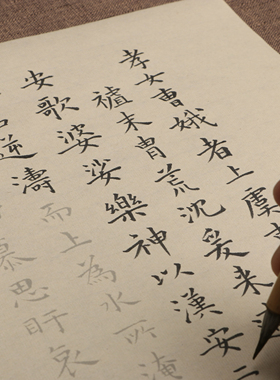 孝女曹娥者上虞
末胄荒沈爰来
安歌婆娑樂神以漢安二
逆濤而上為水所淹
慕思盱哀